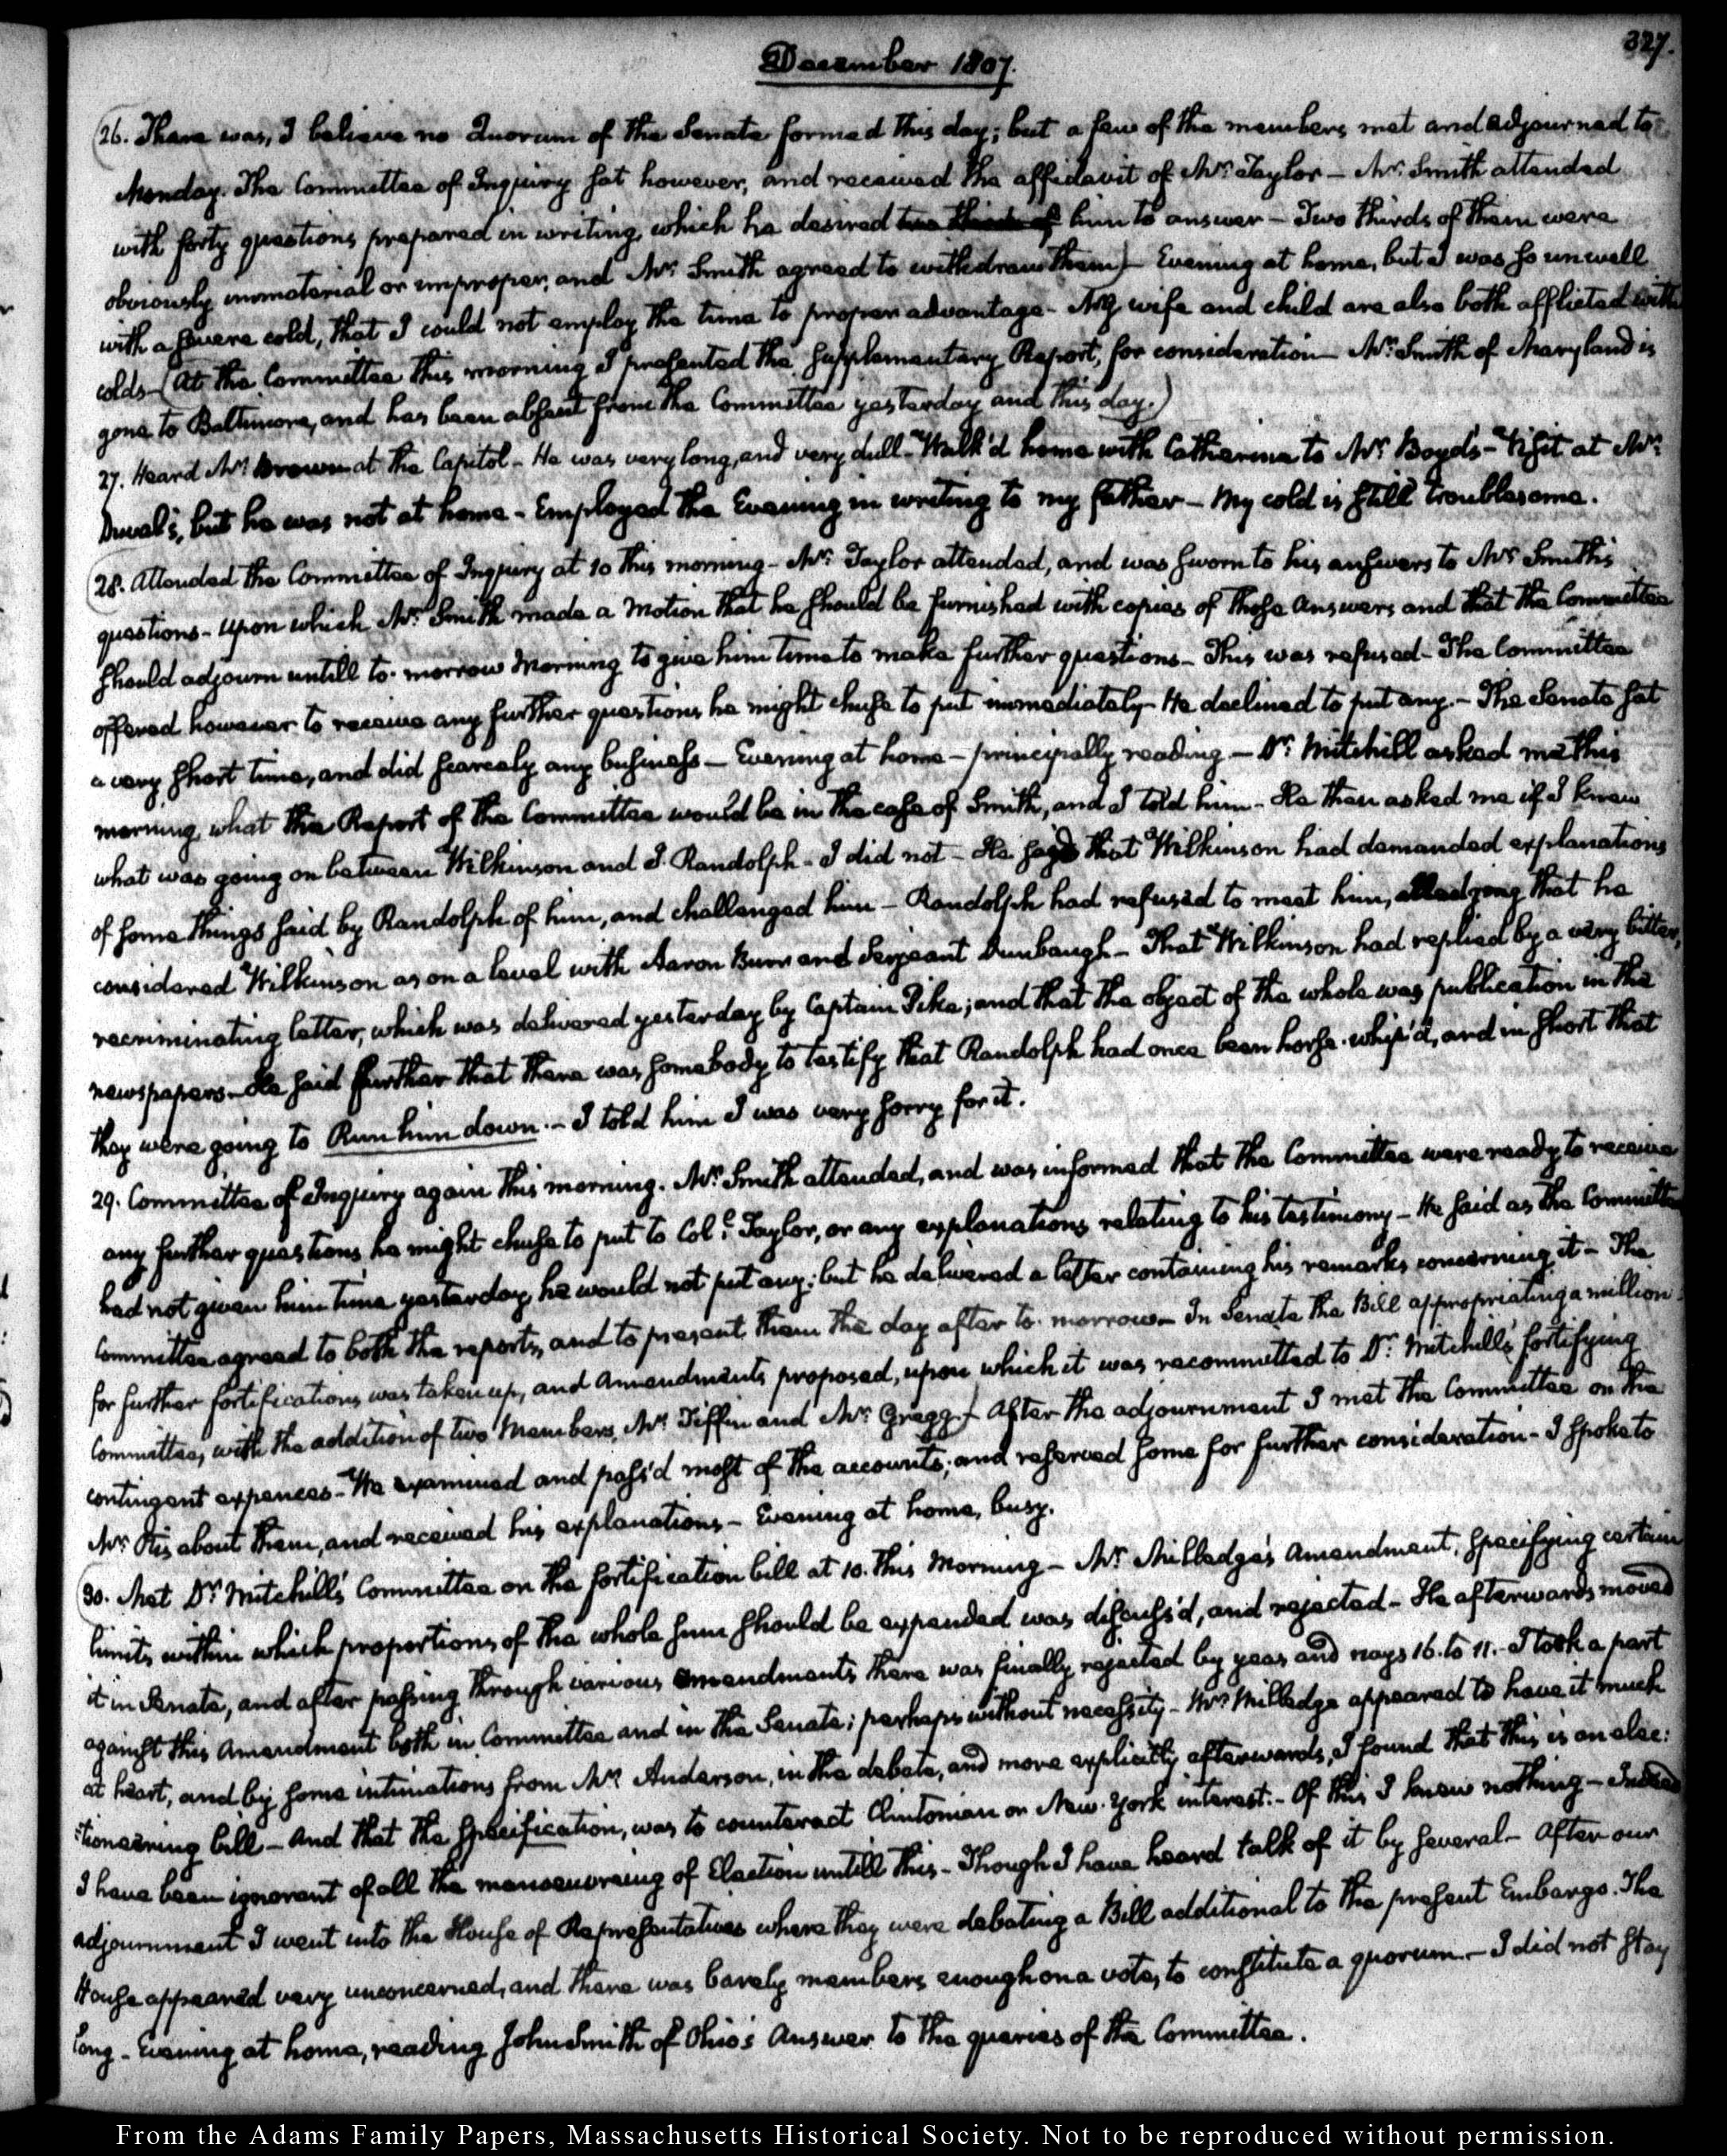 327.
December 1807.
26. There was, I believe no Quorum of the Senate formed this day; but a few of the members met and adjourned to
Monday. The Committee of Inquiry sat however, and received the affidavit of Mr. Taylor — Mr. Smith attended
with forty questions prepared in writing, which he desired two thirds of him to answer — Two thirds of them were
obviously immaterial or improper, and Mr. Smith agreed to withdraw them) — Evening at home, but I was so unwell
with a severe cold, that I could not employ the time to proper advantage - My wife and child are also both afflicted with
colds — (At the Committee this morning I presented the supplementary Report, for consideration — Mr. Smith of Maryland is
gone to Baltimore, and has been absent from the Committee yesterday and this day.)
27. Heard Mr. Brown at the Capitol - He was very long, and very dull - Walk'd home with Catharine to Mr. Boyd's - Visit at Mr.
Duval's, but he was not at home - Employed the Evening in writing to my father — My cold is still troublesome.
28. Attended the Committee of Inquiry at 10 this morning - Mr. Taylor attended, and was sworn to his answers to Mr. Smith's
questions - upon which Mr. Smith made a Motion that he should be furnished with copies of those Answers and that the Committee
should adjourn untill to-morrow Morning to give him time to make further questions - This was refused - The Committee
offered however to receive any further questions he might chuse to put immediately - He declined to put any. - The Senate sat
a very short time, and did scarcely any business — Evening at home — principally reading — Dr. Mitchill asked me this
morning what the Report of the Committee would be in the case of Smith, and I told him - He then asked me if I knew
what was going on between Wilkinson and J. Randolph - I did not - He says that Wilkinson had demanded explanations
of some things said by Randolph of him, and challenged him — Randolph had refused to meet him, alledging that he
considered Wilkinson as on a level with Aaron Burr and Serjeant Dunbaugh - That Wilkinson had replied by a very bitter,
recriminating letter, which was delivered yesterday by Captain Pike; and that the object of the whole was publication in the
newspapers - He said further that there was somebody to testify that Randolph had once been horse-whip'd, and in short that
they were going to Run him down. - I told him I was very sorry for it.
29. Committee of Inquiry again this morning. Mr. Smith attended, and was informed that the Committee were ready to receive
any further questions he might chuse to put to Coll. Taylor, or any explanations relating to his testimony — He said as the Committee
had not given him time yesterday, he would not put any; but he delivered a letter containing his remarks concerning it - The
Committee agreed to both the reports, and to present them the day after to-morrow — In Senate the Bill appropriating a million
for further fortifications was taken up, and Amendments proposed, upon which it was recommitted to Dr. Mitchill's fortifying
Committee, with the addition of two Members, Mr. Tiffin and Mr. Gregg.) After the adjournment I met the Committee on the
contingent expences - We examined and pass'd most of the accounts; and reserved some for further consideration - I spoke to
Mr. Otis about them, and received his explanations — Evening at home, busy.
30. Met Dr. Mitchill's Committee on the fortification bill at 10. this Morning — Mr. Milledge's Amendment, specifying certain
limits within which proportions of the whole sum should be expended was discuss'd, and rejected - He afterwards moved
it in Senate, and after passing through various amendments there was finally rejected by yeas and nays 16. to 11. - I took a part
against this Amendment both in Committee and in the Senate; perhaps without necessity - Mr. Milledge appeared to have it much
at heart, and by some intimations from Mr. Anderson, in the debate, and more explicitly afterwards, I found that this is an elec:
:tioneering bill — And that the specification, was to counteract Clintonian or New-York interest. - Of this I knew nothing — Indeed
I have been ignorant of all the manoeuvreing of Election untill this - Though I have heard talk of it by several - After our
adjournment I went into the House of Representatives where they were debating a Bill additional to the present Embargo. The
House appeared very unconcerned, and there was barely members enough on a vote, to constitute a quorum. — I did not stay
long - Evening at home, reading John Smith of Ohio's Answer to the queries of the Committee.
From the Adams Family Papers, Massachusetts Historical Society. Not to be reproduced without permission.